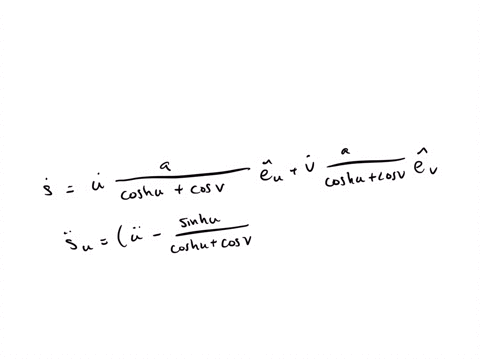 ṡ = u̇ a/(coshu + cosv) ê_u + v̇ a/(coshu + cosv) ê_v
s̈_u = (ü - sinhu/(coshu + cosv)